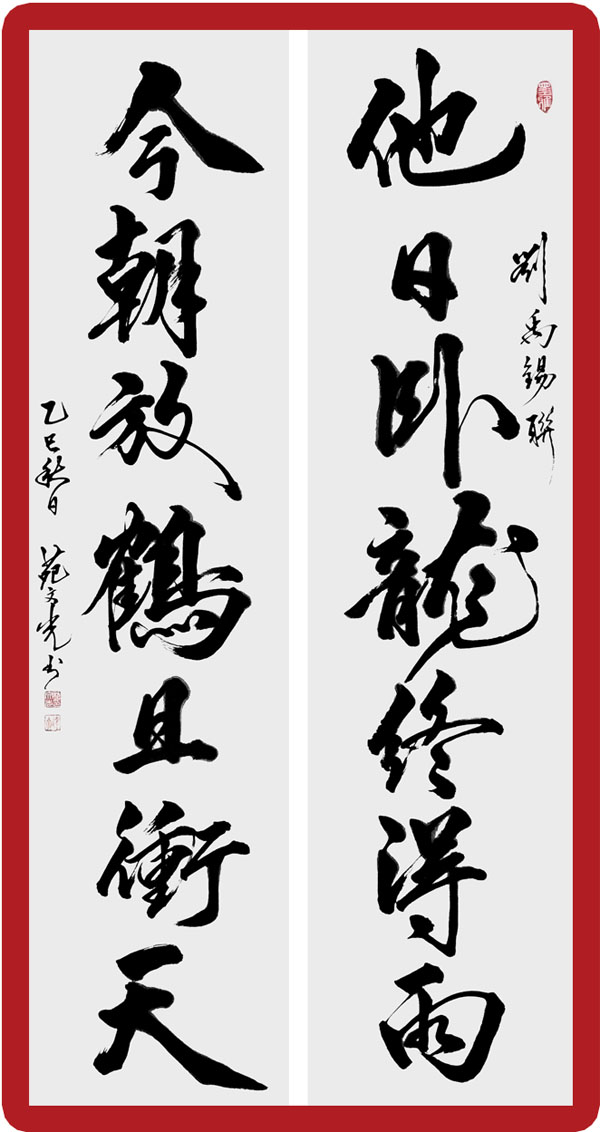 他日卧龍終得雨
劉禹錫聯
今朝放鶴且衝天
乙巳秋日 苑文光书